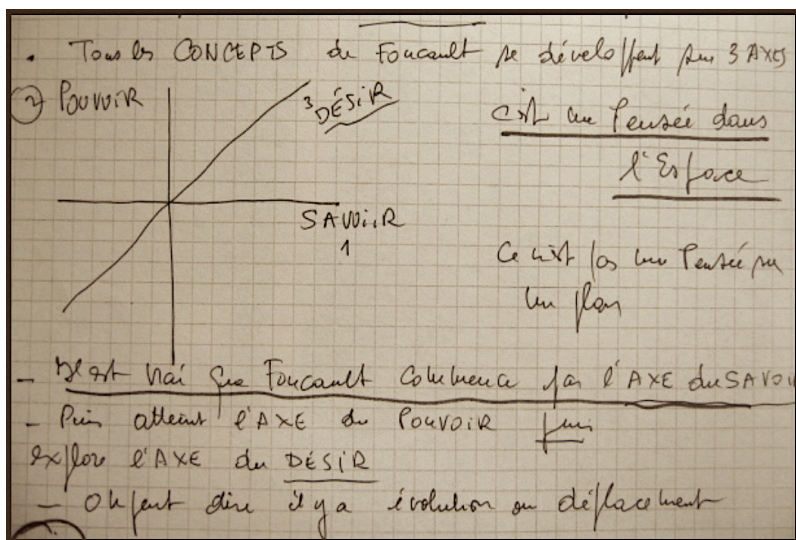 . Tous les CONCEPTS de Foucault se développent sur 3 AXES
2 POUVOIR
3 DÉSIR
SAVOIR
1
C'est une Pensée dans
l'Espace
Ce n'est pas une Pensée sur
un plan
- Il est vrai que Foucault commence par l'AXE du SAVOIR
- Puis atteint l'AXE du POUVOIR puis
explore l'AXE du DÉSIR
- On peut dire il y a évolution ou déplacement